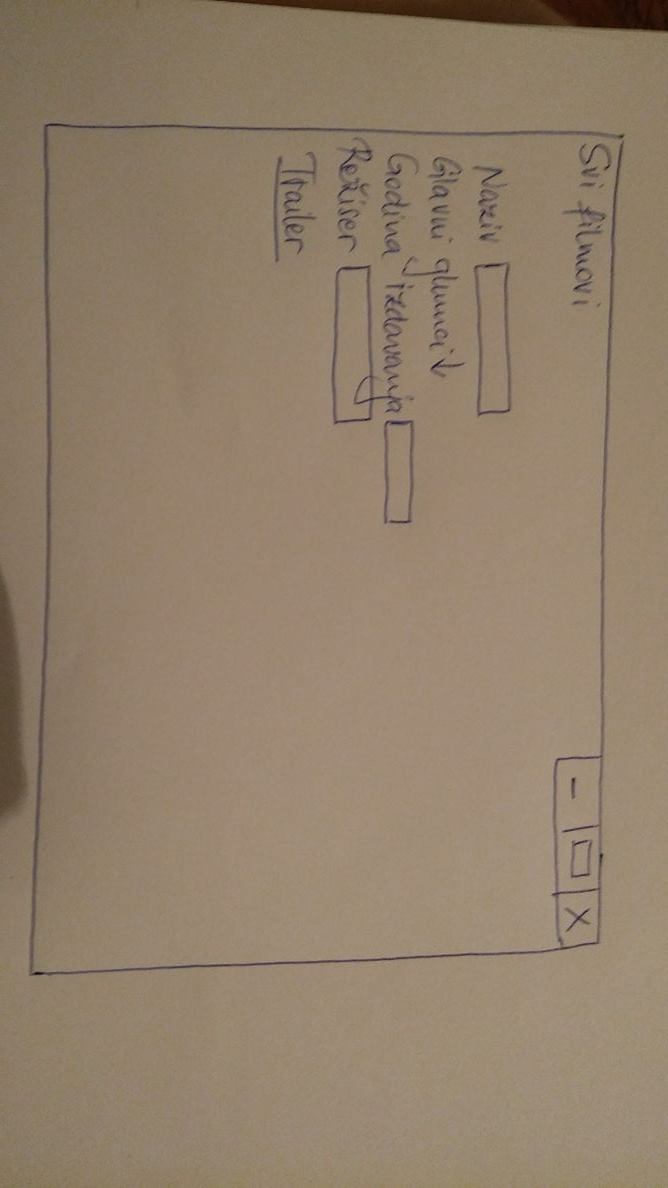 Svi filmovi
Naziv
Glavni glumci ↓
Godina izdavanja
Režiser
Trailer